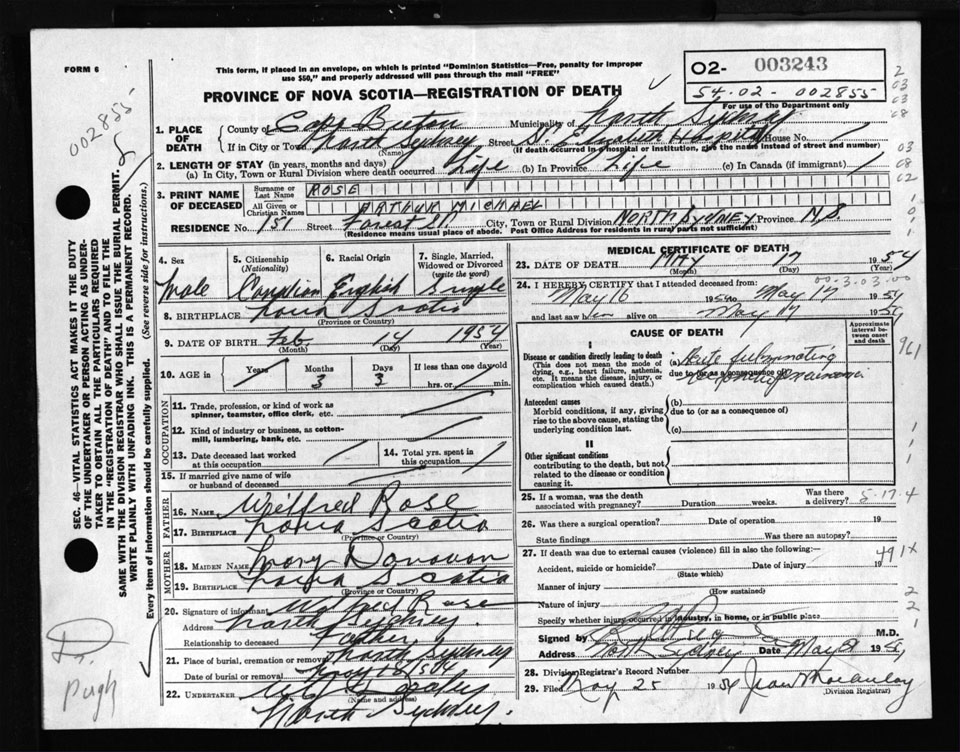 FORM 6
This form, if placed in an envelope, on which is printed "Dominion Statistics—Free, penalty for improper
use $50," and properly addressed will pass through the mail "FREE"
02- 003243
54-02-002855
For use of the Department only
PROVINCE OF NOVA SCOTIA—REGISTRATION OF DEATH
002855
1. PLACE OF DEATH
County of Cape Breton Municipality of North Sydney
If in City or Town North Sydney Street Hospital House No.
(Name) (If death occurred in a hospital or institution, give the name instead of street and number)
2. LENGTH OF STAY (in years, months and days)
(a) In City, Town or Rural Division where death occurred Life (b) In Province Life (c) In Canada (if immigrant)
3. PRINT NAME OF DECEASED
Surname or Last Name ROSE
All Given or Christian Names ARTHUR MICHAEL
RESIDENCE No. 151 Street Forest St. City, Town or Rural Division NORTH SYDNEY Province N.S.
(Residence means usual place of abode. Post Office Address for residents in rural parts not sufficient)
4. Sex
Male
5. Citizenship (Nationality)
Canadian
6. Racial Origin
English
7. Single, Married, Widowed or Divorced (write the word)
Single
8. BIRTHPLACE Nova Scotia
(Province or Country)
9. DATE OF BIRTH Feb. 14 1954
(Month) (Day) (Year)
10. AGE in Years Months 3 Days 3 If less than one day old
hrs. or min.
OCCUPATION
11. Trade, profession or kind of work as
spinner, teamster, office clerk, etc.
12. Kind of industry or business, as cotton-
mill, lumbering, bank, etc.
13. Date deceased last worked
at this occupation
14. Total yrs. spent in
this occupation
15. If married give name of wife
or husband of deceased
FATHER
16. Name Wilfred Rose
17. BIRTHPLACE Nova Scotia
(Province or Country)
MOTHER
18. MAIDEN NAME Mary Donovan
19. BIRTHPLACE Nova Scotia
(Province or Country)
20. Signature of informant Wilfred Rose
Address North Sydney
Relationship to deceased Father
21. Place of burial, cremation or removal North Sydney
Date of burial or removal May 18
22. UNDERTAKER
(Name and address)
North Sydney.
MEDICAL CERTIFICATE OF DEATH
23. DATE OF DEATH May 17 1954
(Month) (Day) (Year)
00.3.03.00
24. I HEREBY CERTIFY that I attended deceased from:
May 16 1954 to May 17 1954
and last saw him alive on May 17 1954
CAUSE OF DEATH
Approximate interval between onset and death
I
Disease or condition directly leading to death
(This does not mean the mode of dying, e.g., heart failure, asthenia, etc. It means the disease, injury, or complication which caused death.)
(a) Acute fulminating
due to (or as a consequence of)
Antecedent causes
Morbid conditions, if any, giving rise to the above cause, stating the underlying condition last.
(b)
due to (or as a consequence of)
(c)
II
Other significant conditions
contributing to the death, but not related to the disease or condition causing it.
961
25. If a woman, was the death
associated with pregnancy? Duration weeks. Was there a delivery?
5-17-4
26. Was there a surgical operation? Date of operation 19
State findings Was there an autopsy?
27. If death was due to external causes (violence) fill in also the following:—
Accident, suicide or homicide? Date of injury 19
(State which)
491X
Manner of injury
(How sustained)
Nature of injury
Specify whether injury occurred in industry, in home, or in public place
Signed by M.D.
Address North Sydney Date May 1954
28. Division Registrar's Record Number
29. Filed May 25 1954 Jean Macaulay
(Division Registrar)
SEC. 46—VITAL STATISTICS ACT MAKES IT THE DUTY
OF THE UNDERTAKER OR PERSON ACTING AS UNDER-
TAKER TO OBTAIN ALL THE PARTICULARS REQUIRED
IN THE "REGISTRATION OF DEATH" AND TO FILE THE
SAME WITH THE DIVISION REGISTRAR WHO SHALL ISSUE THE BURIAL PERMIT.
WRITE PLAINLY WITH UNFADING INK. THIS IS A PERMANENT RECORD.
Every item of information should be carefully supplied. (See reverse side for instructions.)
Dr.
Pugh